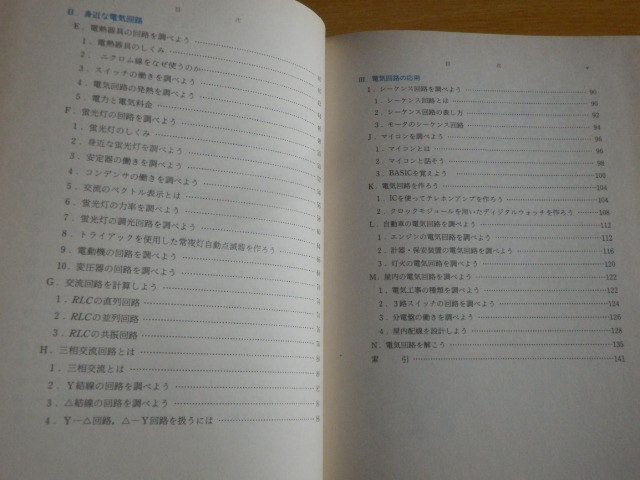 目 次
Ⅱ. 身近な電気回路
E. 電熱器具の回路を調べよう
1. 電熱器具のしくみ
2. ニクロム線をなぜ使うのか
3. スイッチの働きを調べよう
4. 電気回路の発熱を調べよう
5. 電力と電気料金
F. 蛍光灯の回路を調べよう
1. 蛍光灯のしくみ
2. 身近な蛍光灯を調べよう
3. 安定器の働きを調べよう
4. コンデンサの働きを調べよう
5. 交流のベクトル表示とは
6. 蛍光灯の力率を調べよう
7. 蛍光灯の調光回路を調べよう
8. トライアックを使用した常夜灯自動点滅器を作ろう
9. 電動機の回路を調べよう
10. 変圧器の回路を調べよう
G. 交流回路を計算しよう
1. RLCの直列回路
2. RLCの並列回路
3. RLCの共振回路
H. 三相交流回路とは
1. 三相交流とは
2. Y結線の回路を調べよう
3. △結線の回路を調べよう
4. Y—△回路, △—Y回路を扱うには
目 次
Ⅲ. 電気回路の応用
I. シーケンス回路を調べよう 90
1. シーケンス回路とは 90
2. シーケンス回路の表し方 92
3. モータのシーケンス回路 94
J. マイコンを調べよう 96
1. マイコンとは 96
2. マイコンと話そう 98
3. BASICを覚えよう 100
K. 電気回路を作ろう 104
1. ICを使ってテレホンアンプを作ろう 104
2. クロックモジュールを用いたディジタルウォッチを作ろう 108
L. 自動車の電気回路を調べよう 112
1. エンジンの電気回路を調べよう 112
2. 計器・保安装置の電気回路を調べよう 116
3. 灯火の電気回路を調べよう 120
M. 屋内の電気回路を調べよう 122
1. 電気工事の種類を調べよう 122
2. 3路スイッチの回路を調べよう 124
3. 分電盤の働きを調べよう 126
4. 屋内配線を設計しよう 128
N. 電気回路を解こう 135
索 引 141